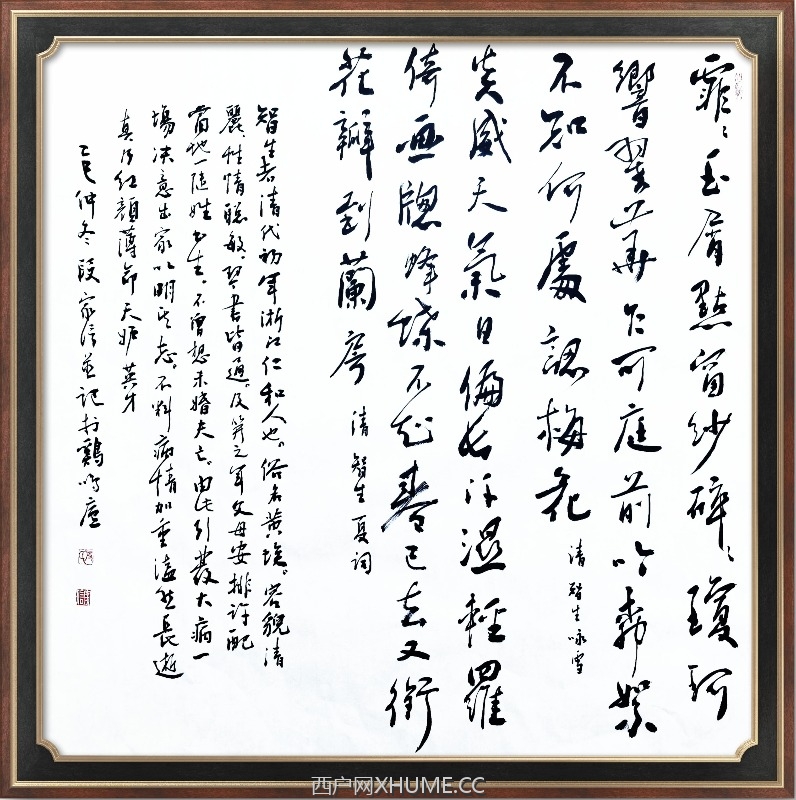 霏霏玉屑點窗紗碎碎瓊珂
響翠華乍可庭前吟柳絮
不知何處認梅花 清 智生 咏雪
炎威天氣日偏長汗濕輕羅
倚画牕蜂蝶不知春已去又銜
花瓣到蘭房 清 智生 夏词
智生者清代初年浙江仁和人也。俗名黄埃。容貌清
麗,性情聪敏,琴書皆通,及笄之年父母安排许配
當地一陆姓书生,不曾想未婚夫亡,由此引發大病一
場决意出家以明其志,不料病情加重溘然長逝
真乃红顔薄命天妒英才
乙巳仲冬段家信並记於鷄鳴廬
西户网XHUME.CC